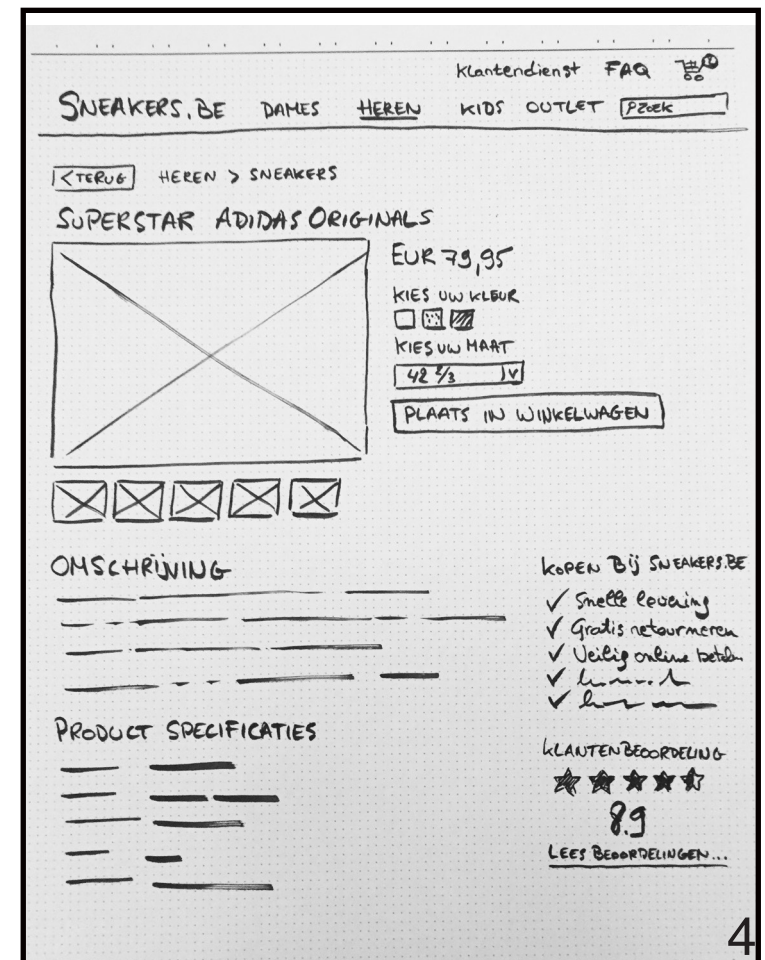 Klantendienst FAQ
SNEAKERS.BE DAMES HEREN KIDS OUTLET zoek
< TERUG HEREN > SNEAKERS
SUPERSTAR ADIDAS ORIGINALS
EUR 79,95
KIES UW KLEUR
KIES UW MAAT
42 2/3
PLAATS IN WINKELWAGEN
OMSCHRIJVING
KOPEN Bij SNEAKERS.BE
✓ Snelle levering
✓ Gratis retourneren
✓ Veilig online betalen
✓
✓
PRODUCT SPECIFICATIES
KLANTENBEOORDELING
8.9
LEES BEOORDELINGEN...
4